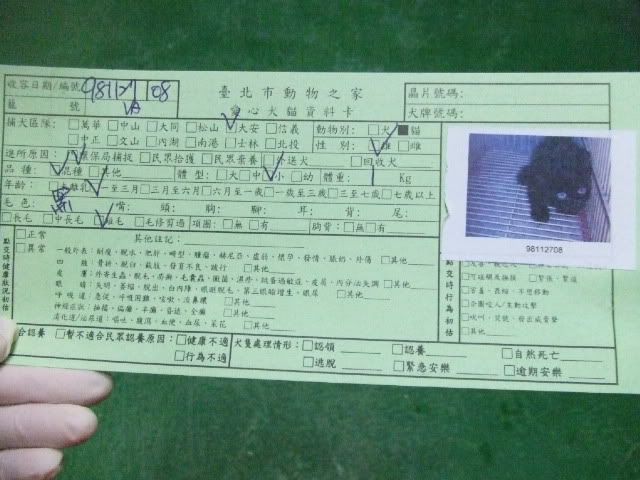 臺北市動物之家
愛心犬貓資料卡
收容日期/編號 981127 08
籠 號
晶片號碼:
犬牌號碼:
捕犬區隊: □萬華 □中山 □大同 □松山 □大安 □信義 動物別: □犬 ■貓
□中正 □文山 □內湖 □南港 □士林 □北投 性 別: □雄 □雌
進所原因: □環保局捕捉 □民眾拾獲 □民眾棄養 □送犬 □回收犬
品 種: □混種 □其他 體 型: □大 □中 □小 □幼 體 重: Kg
年齡: □離乳 □至三月 □三月至六月 □六月至一歲 □一歲至三歲 □三至七歲 □七歲以上
毛 色: 黑 嘴: 頭: 胸: 腳: 耳: 背: 尾:
□長毛 □中長毛 □短毛 □毛修剪過 項圈: □無 □有 胸背: □無 □有
98112708
點交時健康狀況初估
□正常 其他註記:
□異常
一般外表: 削瘦、脫水、肥胖、畸型、腫瘤、赫尼亞、虛弱、懷孕、發情、脹奶、外傷 □其他
四 肢: 骨折、脫臼、截肢、發育不良、跛行 □其他
皮 膚: 外寄生蟲、脫毛、黴菌、跳蚤過敏症、疫屑、內分泌失調 □其他
眼 睛: 失明、萎縮、脫出、白內障、眼瞼脫毛、第三眼瞼增生、眼屎 □其他
呼 吸 道: 急促、呼吸困難、咳嗽、流鼻膿 □其他
神經症狀: 抽搐、癲癇、半癱、昏迷、全癱 □其他
消化道/泌尿道: 嘔吐、腹瀉、血便、血尿、菜花 □其他
點交時行為初估
□可碰觸及撫摸 □緊張、緊迫
□害羞、畏縮、不想移動
□企圖咬人/主動攻擊
□吠叫、哭號、發出威脅聲
□其他
合認養 □暫不適合民眾認養原因: □健康不適
□行為不適
犬隻處理情形: □認領 □認養 □自然死亡
□逃脫 □緊急安樂 □逾期安樂